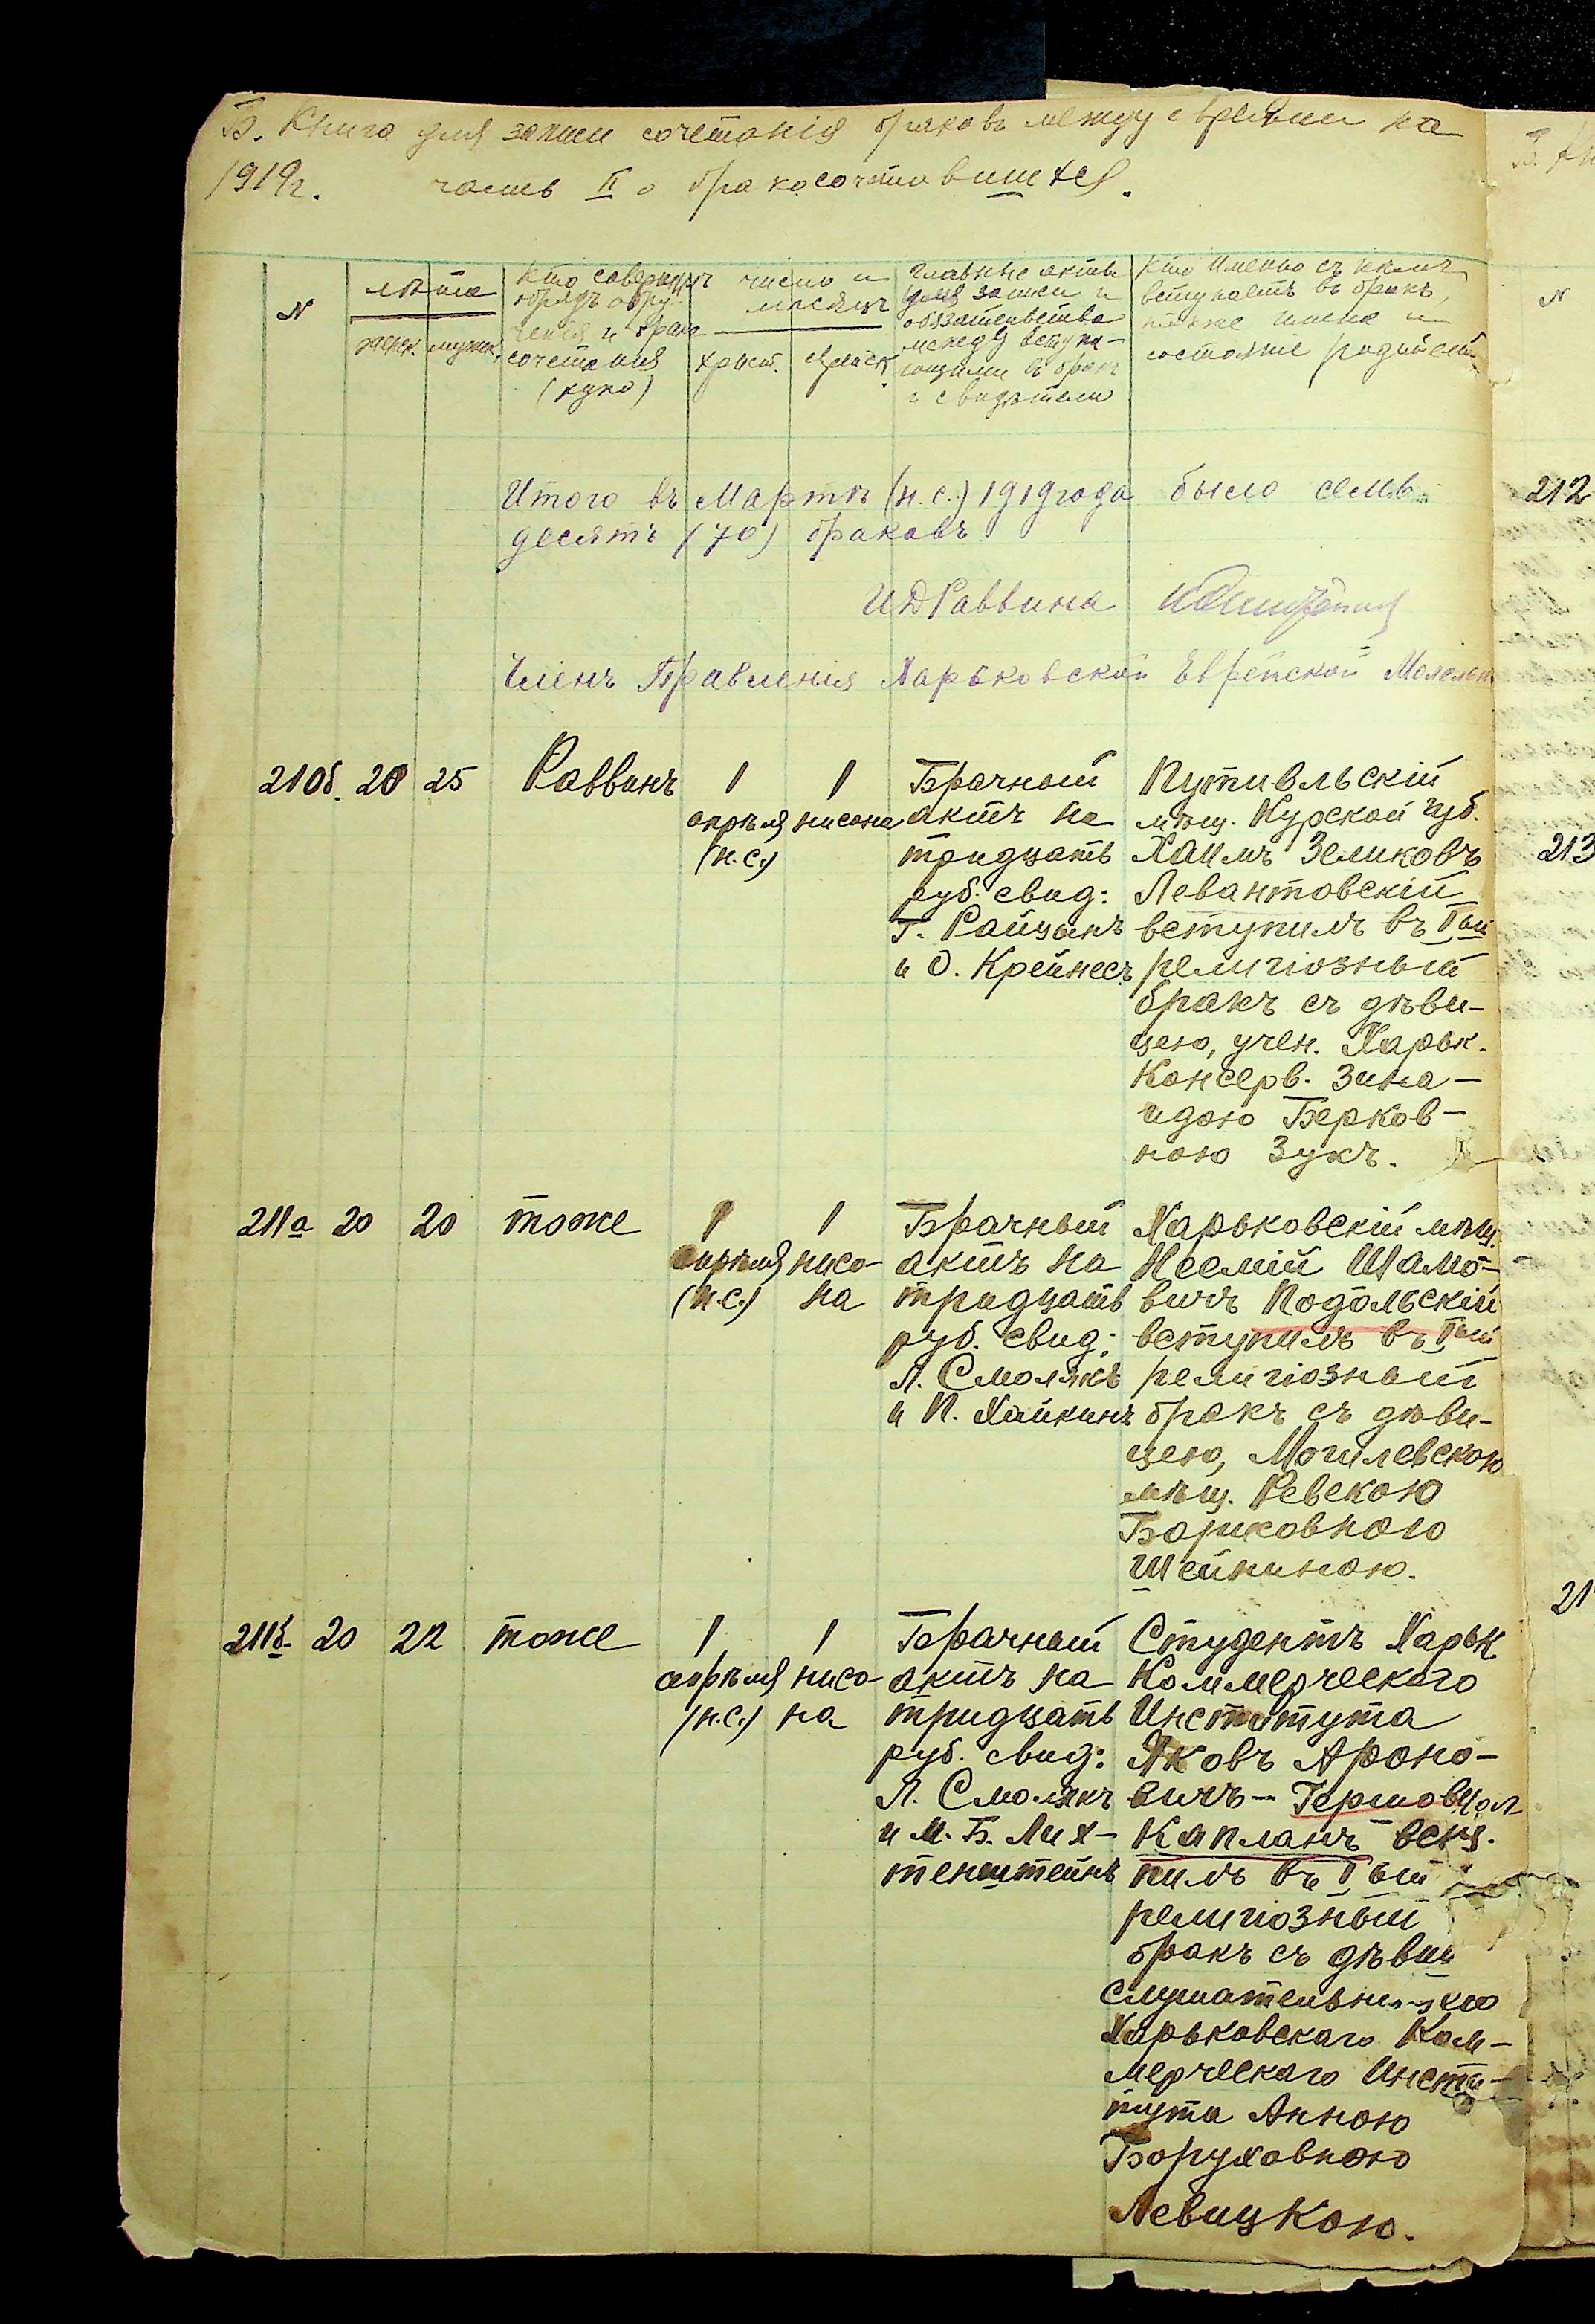 Б. Книга для записи сочетанія браковъ между евреями на
1919г. часть II о бракосочетавшихся.
N
лѣта
женск. мужск.
Кто совершалъ
обрядъ обру-
ченія и брако-
сочетанія
(хупо)
число и
мѣсяцъ
христ. еврейск.
Главные акты
для записи и
обязательства
между вступа-
ющими въ бракъ
и свидѣтели
Кто именно съ кѣмъ
вступаетъ въ бракъ,
также имена и
состояніе родителей
Итого въ Мартѣ (н.с.) 1919 года было семь-
десятъ (70) браковъ
И Д Раввина
Членъ Правленія Харьковской Еврейской Молельни
210б. 20 25 Раввинъ
1
апрѣля
(н.с.)
1
нисона
Брачный
актъ на
тридцать
руб. свид:
Г. Райцынъ
и О. Крейнесъ
Путивльскій
мѣщ. Курской губ.
Хаимъ Зеликовъ
Левантовскій
вступилъ въ Iый
религіозный
бракъ съ дѣви-
цею, учен. Харьк.
Консерв. Зина-
идою Берков-
ною Зукъ.
211а 20 20 тоже
1
апрѣля
(н.с.)
1
нисо-
на
Брачный
актъ на
тридцать
руб. свид:
Л. Смолякъ
и И. Хайкинъ
Харьковскій мѣщ.
Неемій Шамо-
вичъ Подольскій
вступилъ въ Iый
религіозный
бракъ съ дѣви-
цею, Могилевскою
мѣщ. Ревекою
Бориховною
Шейниною.
211б 20 22 тоже
1
апрѣля
(н.с.)
1
нисо-
на
Брачный
актъ на
тридцать
руб. свид:
Л. Смолякъ
и М. Б. Лих-
тенштейнъ
Студентъ Харьк.
Коммерческого
Института
Яковъ Ароно-
вичъ-
Капланъ всту-
пилъ въ Iый
религіозный
бракъ съ дѣвиц
слушательницею
Харьковскаго Ком-
мерческаго Инсти-
тута Анною
Боруховною
Левицкою.
N
212
213
21